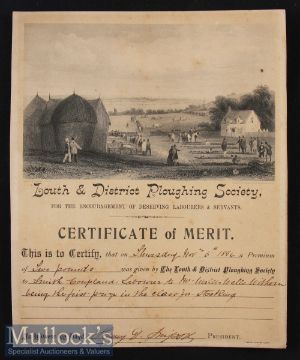 Louth & District Ploughing Society,
FOR THE ENCOURAGEMENT OF DESERVING LABOURERS & SERVANTS.
CERTIFICATE OF MERIT.
This is to Certify, that on Thursday Nov 6th a Premium
of Two pounds was given by The Louth & District Ploughing Society
to Smith Labourer to Mr
being the first prize in the class for Stacking
PRESIDENT.
Mullock's
Specialist Auctioneers & Valuers